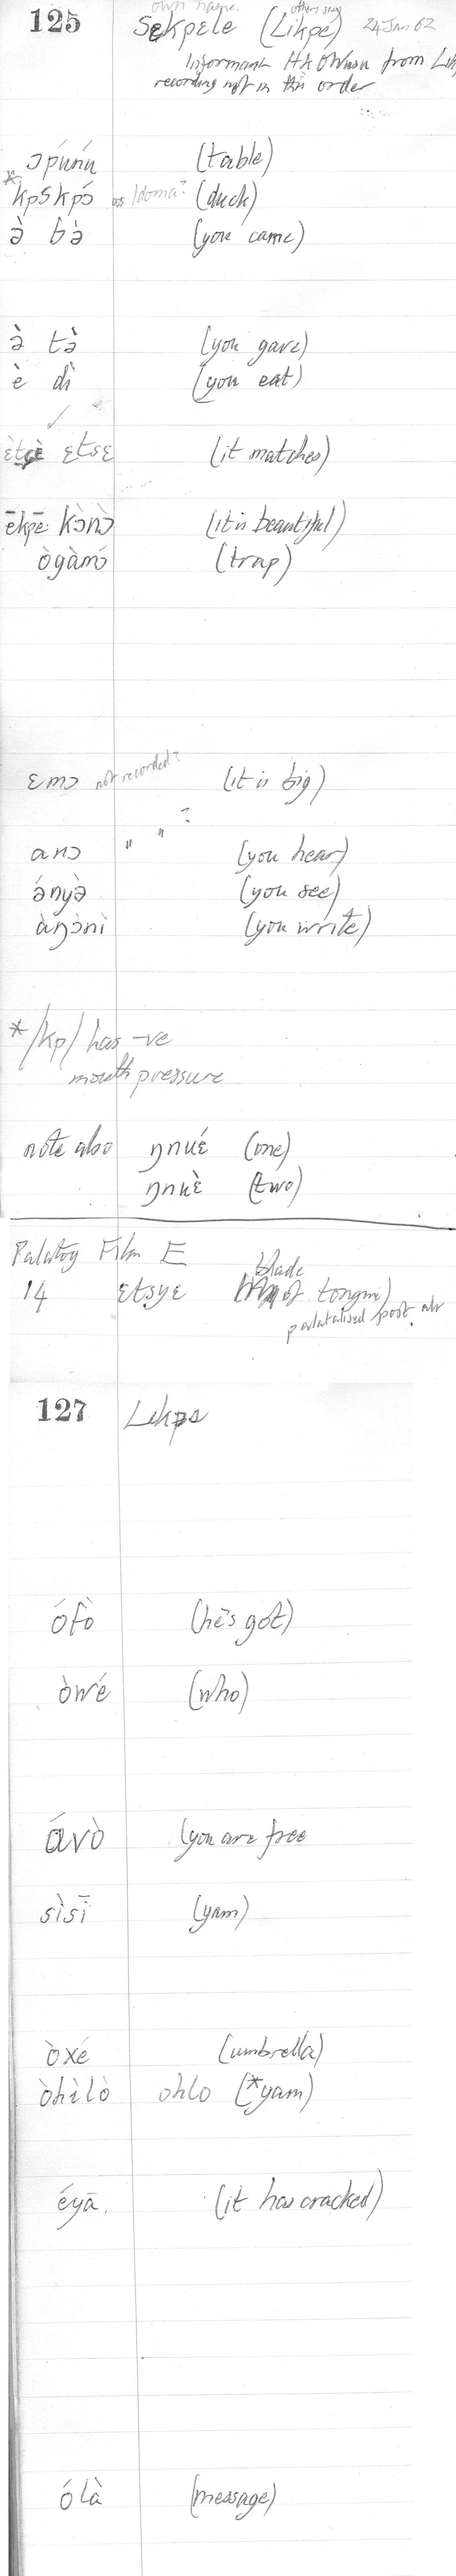 own name. others say
125 Sɛkpele (Likpe) 24 Jan 62
Informant HA Owusu from
recording not in this order
ɔpúnú (table)
* kpɔ̄kpɔ́ as Idoma? (duck)
ə̀ bə̀ (you came)
ə̀ tə̀ (you gave)
è dì (you eat)
ɛtsɛ (it matches)
ēkpē kɔ̀nɔ̀ (it is beautiful)
ògàmɔ́ (trap)
ɛmɔ not recorded? (it is big)
anɔ " " ? (you hear)
ə́nyə̀ (you see)
àŋɔ̀nì (you write)
*/kp/ has -ve
mouth pressure
note also ŋnué (one)
ŋnuè (two)
Palatog Film E
14 ɛtsyɛ blade of tongue)
palatalised post. alv
127 Likpe
ófò (he's got)
òwé (who)
ávò (you are free
sìsī (yam)
òxé (umbrella)
òhìlò ohlo (*yam)
éyā. (it has cracked)
ólà (message)